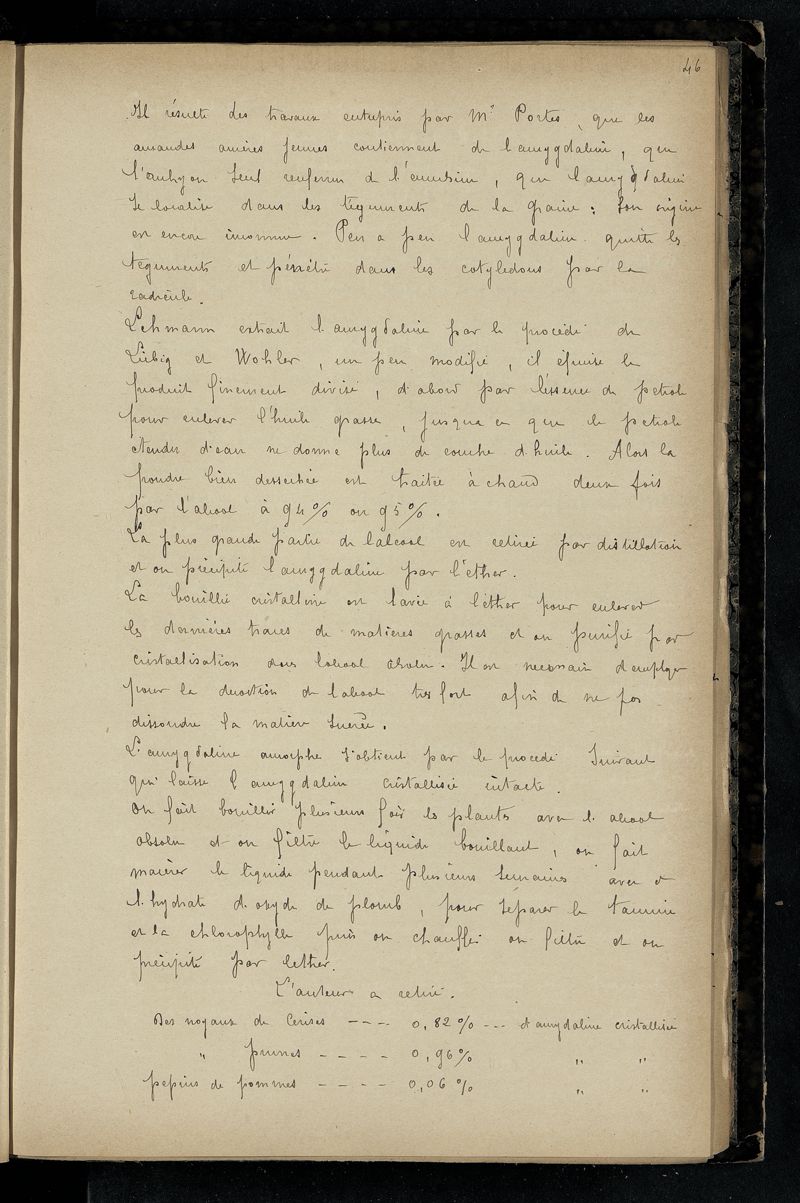 46
Il résulte des travaux entrepris par Mr Portes, que les
amandes amères jeunes contiennent de l'amygdaline, que
l'embryon seul renferme de l'émulsine, que l'amygdaline
se localise dans les téguments de la graine; son origine
est encore inconnue. Peu a peu l'amygdaline quitte les
téguments et pénètre dans les cotylédons par la
radicule.
Lehmann extrait l'amygdaline par le procédé de
Liebig et Wohler, un peu modifié, il épuise le
produit finement divisé, d'abord par l'éssence de petrole
pour enlever l'huile grasse, jusqua ce que le petrole
etendu d'eau ne donne plus de couche d'huile. Alors la
poudre bien dessechée est traitée à chaud deux fois
par l'alcool à 94% ou 95%.
La plus grande partie de l'alcool est retirée par distillation
et on précipite l'amygdaline par l'éther.
La bouillie cristalline est lavée à l'éther pour enlever
les dernières traces de matières grasses et on purifie par
cristallisation dans l'alcool absolu. Il est necessaire d'employer
pour la decoction de l'alcool très fort afin de ne pas
dissoudre la matière sucrée.
L'amygdaline amorphe s'obtient par le procédé suivant
qui laisse l'amygdaline cristallisée intacte.
On fait bouillir plusieurs fois les plantes avec l'alcool
absolu et on filtre le liquide bouillant, on fait
macérer le liquide pendant plusieurs semaines avec d
l'hydrate d'oxyde de plomb, pour séparer le tannin
et la chlorophylle puis on chauffe on filtre et on
précipite par l'ether.
L'auteur a retiré.
Des noyaux de Cerises ---- 0,82% --- d'amygdaline cristallisée
" prunes ---- 0,96% " "
pepins de pommes ---- 0,06% " "